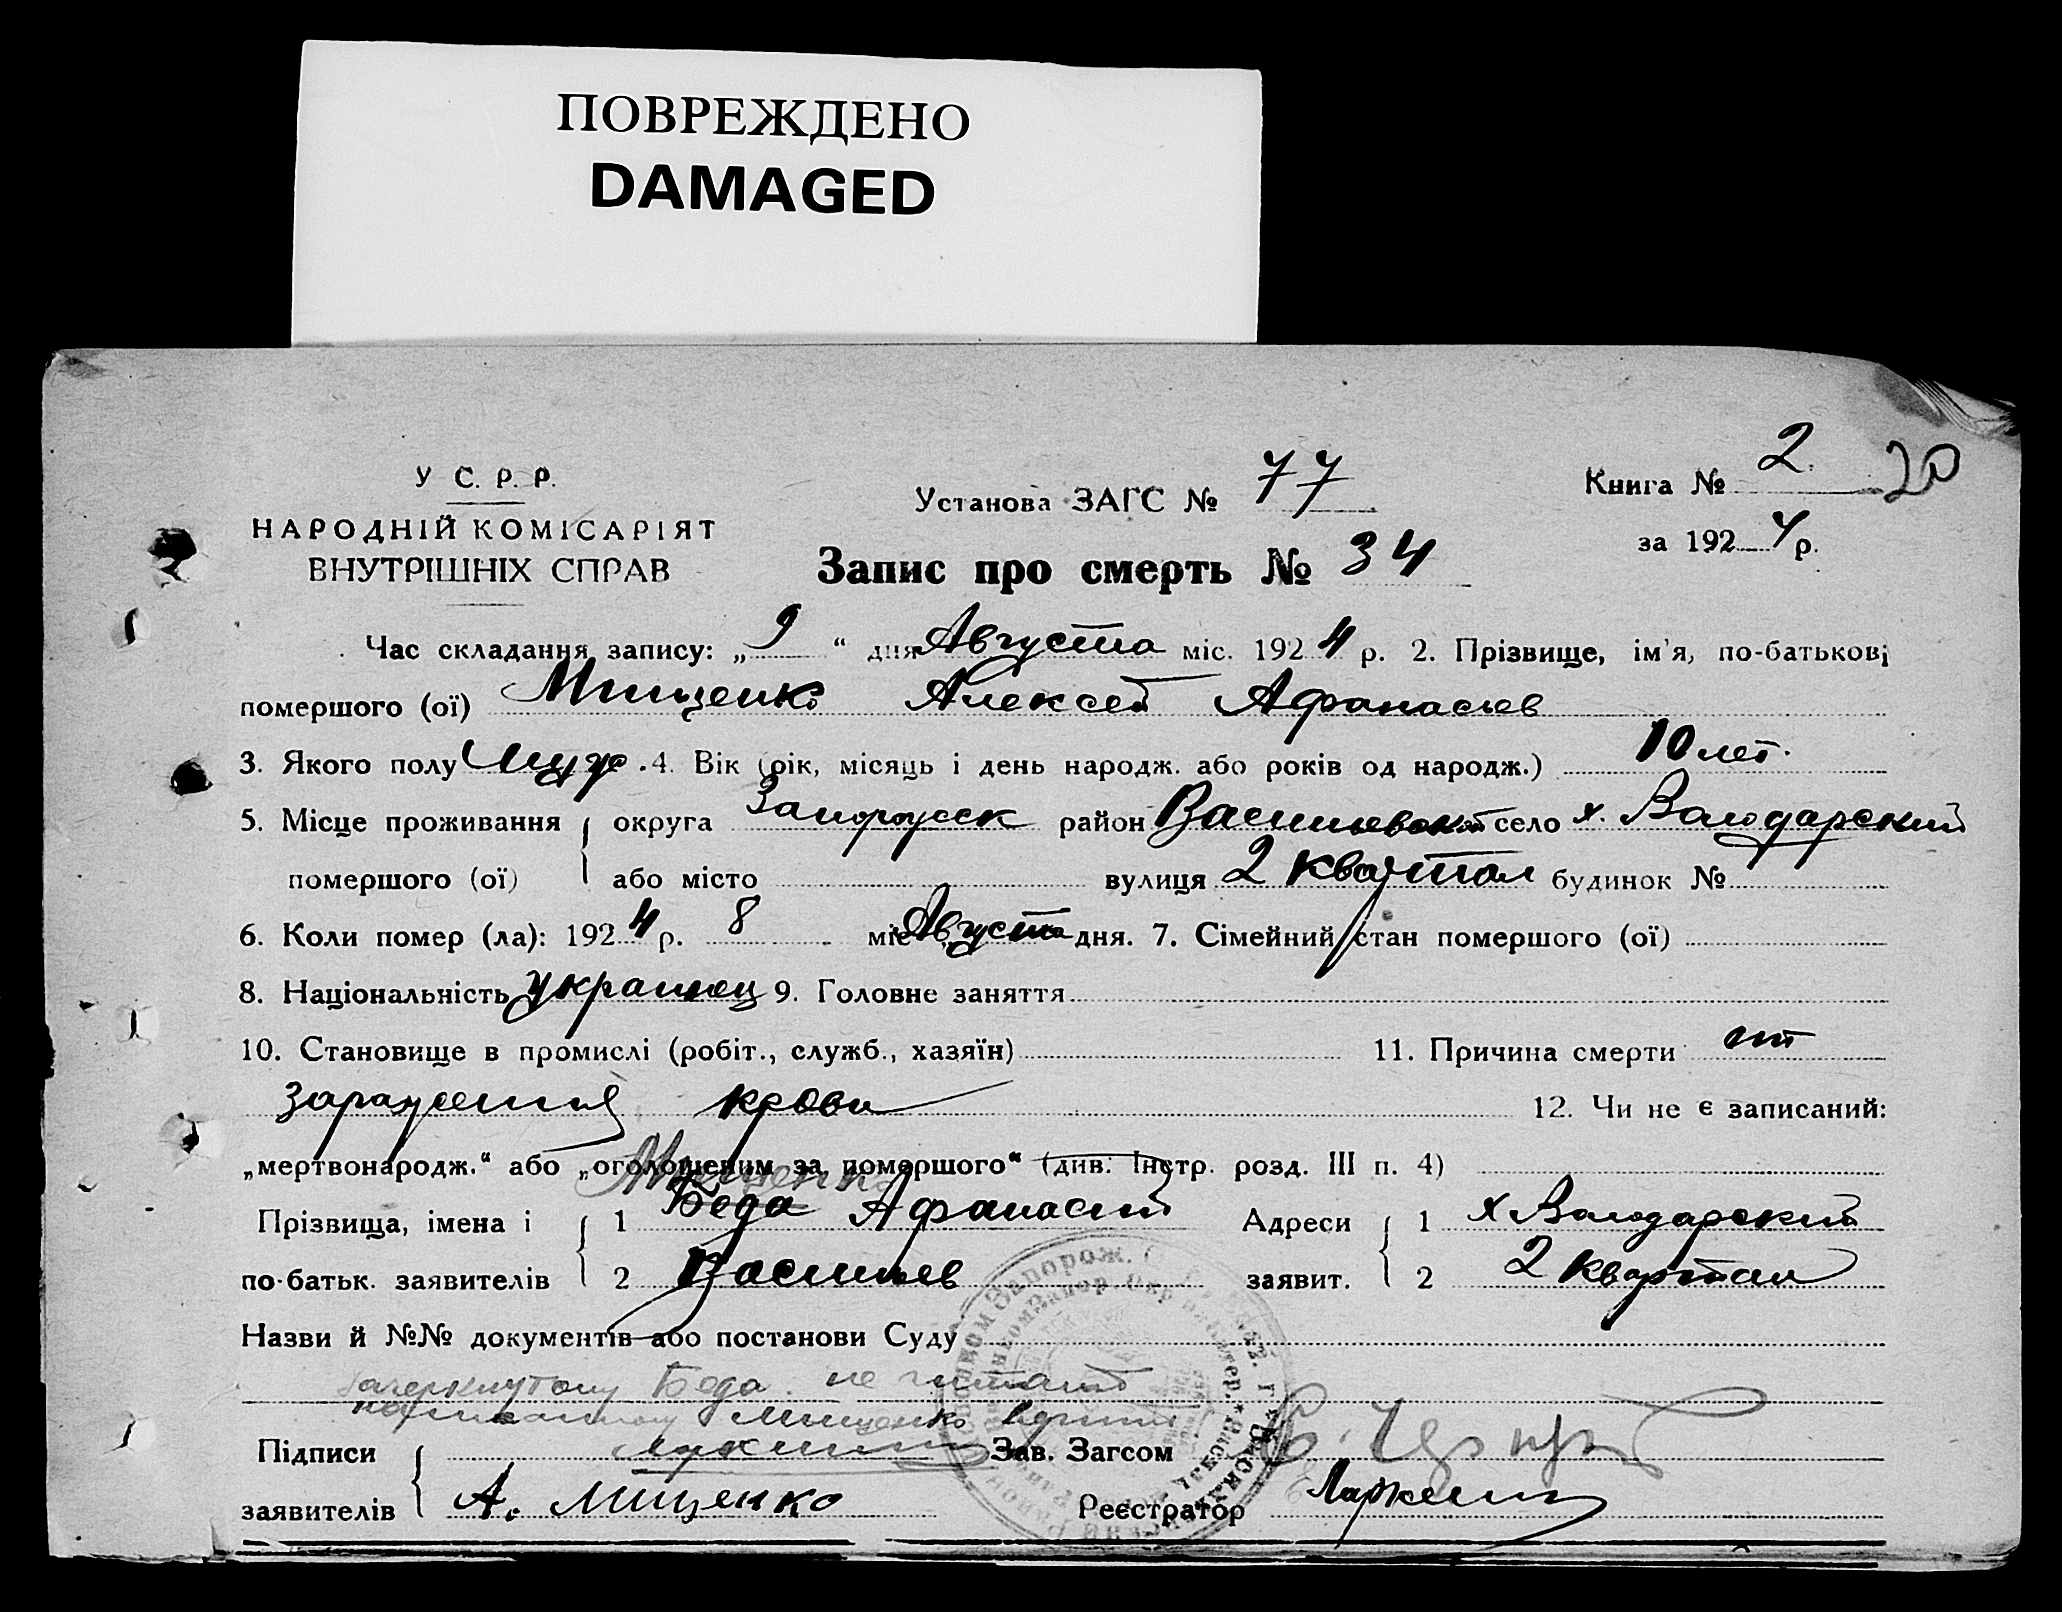 ПОВРЕЖДЕНО
DAMAGED
У С. Р. Р.
НАРОДНІЙ КОМІСАРІЯТ
ВНУТРІШНІХ СПРАВ
Установа ЗАГС № 77
Книга № 2. 20
за 1924 р.
Запис про смерть № 34
Час складання запису: „9“ дня Августа міс. 1924 р. 2. Прізвище, ім'я, по-батькові
помершого (ої) Мищенко Алексей Афанасьев
3. Якого полу Муж. 4. Вік (рік, місяць і день народж. або років од народж.) 10 лет.
5. Місце проживання округа Запорожск район Васильевский село х. Володарский
помершого (ої) або місто вулиця 2 квартал будинок №
6. Коли помер (ла): 1924 р. 8 міс Августа дня. 7. Сімейний стан помершого (ої)
8. Національність украинец 9. Головне заняття
10. Становище в промислі (робіт., служб., хазяїн) 11. Причина смерти от
заражения крови 12. Чи не є записаний:
„мертвонародж.“ або „оголошеним за помершого“ (див. Інстр. розд. III п. 4)
Мищенко
Прізвища, імена і 1 Беда Афанасий Адреси 1 х Володарский
по-батьк. заявителів 2 Васильев заявит. 2 2 квартал
Назви й №№ документів або постанови Суду
зачеркнутому Беда не читать
написанному Мищенко верить
Підписи Зав. Загсом
заявителів А. Мищенко Реєстратор Ларкин